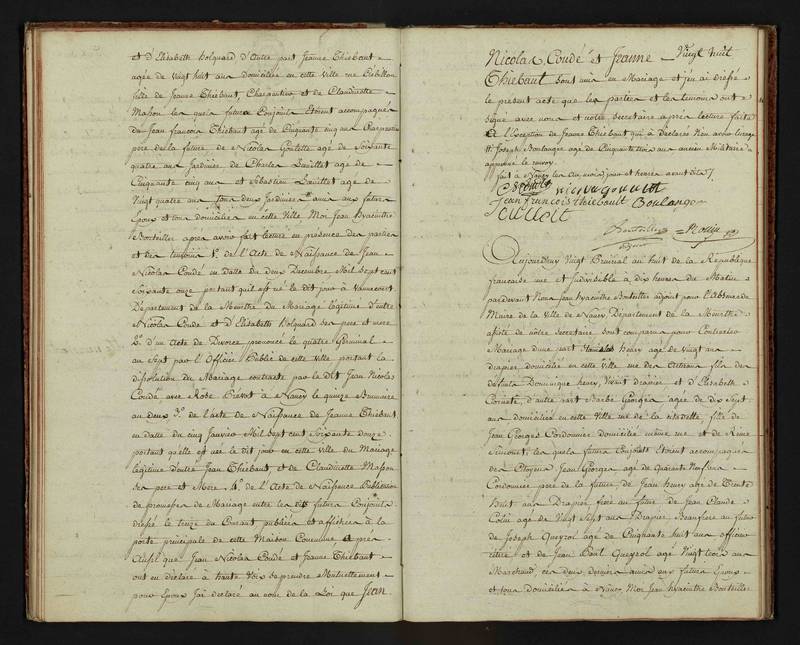 et d'Elisabeth Bolquard d'autre part Jeanne Thiebaut
agée de vingt huit ans domiciliée en cette ville rue
fille de Jeanne Thiebaut, Charpentier et de Claudinette
Masson les quels futurs Conjoints étoient accompagnés
de Jean francois Thiebaut agé de Cinquante cinq ans Charpentier
pere de la future de Nicolas agé de Soixante
quatre ans Jardinier de Charles agé de
Cinquante cinq ans et Sebastien agé de
Vingt quatre ans tous deux Jardiniers amis aux futurs
Epoux et tous domiciliés en cette Ville Moi Jean hyacinthe
Bouteiller après avoir fait lecture en presence des parties
et des temoins 1.° de l'Acte de Naissance de Jean
Nicolas Condé en datte du deux Decembre Mil sept cent
Soixante onze portant qu'il est né le dit jour à
Département de la Meurthe du Mariage légitime d'entre
Nicolas Condé et d'Elisabeth Bolquard ses pere et mere
2.° d'un Acte de Divorce prononcé le quatre Germinal
an Sept par l'Officier Public de cette ville portant la
dissolution du Mariage contracté par le dit Jean Nicolas
Condé avec Rose Prevot à Nancy le quinze Brumaire
an deux 3.° de l'acte de Naissance de Jeanne Thiebaut
en datte du cinq Janvier Mil sept cent Soixante douze
portant qu'elle est née le dit jour en cette ville du Mariage
légitime d'entre Jean Thiébaut, et de Claudinette Masson
ses pere et Mere 4.° de l'Acte de Publication
de promesses de Mariage entre les dits futurs Conjoints
dressé le treize du Courant publiée et affichée à la
porte principale de cette Maison Commune
Aussi que Jean Nicolas Condé et Jeanne Thiebaut
ont eu déclaré à haute Voix se prendre Mutuellement
pour Epoux J'ai declaré au nom de la Loi que Jean
Nicolas Condé et Jeanne Vingt huit
Thiébaut sont unis en Mariage et j'en ai dressé
le present acte que les parties et les temoins ont
signé avec nous et notre secretaire après lecture faite
à l'Exception de Jeanne Thiebaut qui à declarée n'en avoir l'usage
# Joseph Boulanger agé de Cinquante trois ans ancien Militaire
approuvé le renvoy.
fait à Nancy les an, mois, jour et heures avant dits
Jean francois thiebault Boulanger
Bouteiller
Aujourd'huy Vingt Prairial an huit de la République
francaise une et Indivisible à dix heures du Matin
pardevant Nous Jean hyacinthe Bouteiller adjoint pour l'Absence du
Maire de la Ville de Nancy Département de la Meurthe
assisté de nôtre secretaire sont comparus pour Contracter
Mariage d'une part henry agé de vingt ans
drapier domicilié en cette Ville rue des Artisans fils des
defunts Dominique henry, Vivant drapier et d'Elisabeth
d'autre part Barbe Georges agée de dix Sept
ans domiciliée en cette Ville rue de la Citadelle fille de
Jean Georges Cordonnier domicilié même rue et de Reine
Simonet, les quels futurs Conjoints Etoient accompagnés
des Citoyens Jean Georges agé de Quarante Neuf ans
Cordonnier pere de la future de Jean henry agé de Trente
huit ans Drapier frere au futur de Jean Claude
Colin agé de Vingt Sept ans Drapier Beaufrere au futur
de Joseph Queyrol agé de Cinquante huit ans officier
retiré et de Jean Queyrol agé Vingt trois ans
Marchand, ces deux derniers amis aux futurs Epoux
et tous domiciliés à Nancy Moi Jean hyacinthe Bouteiller